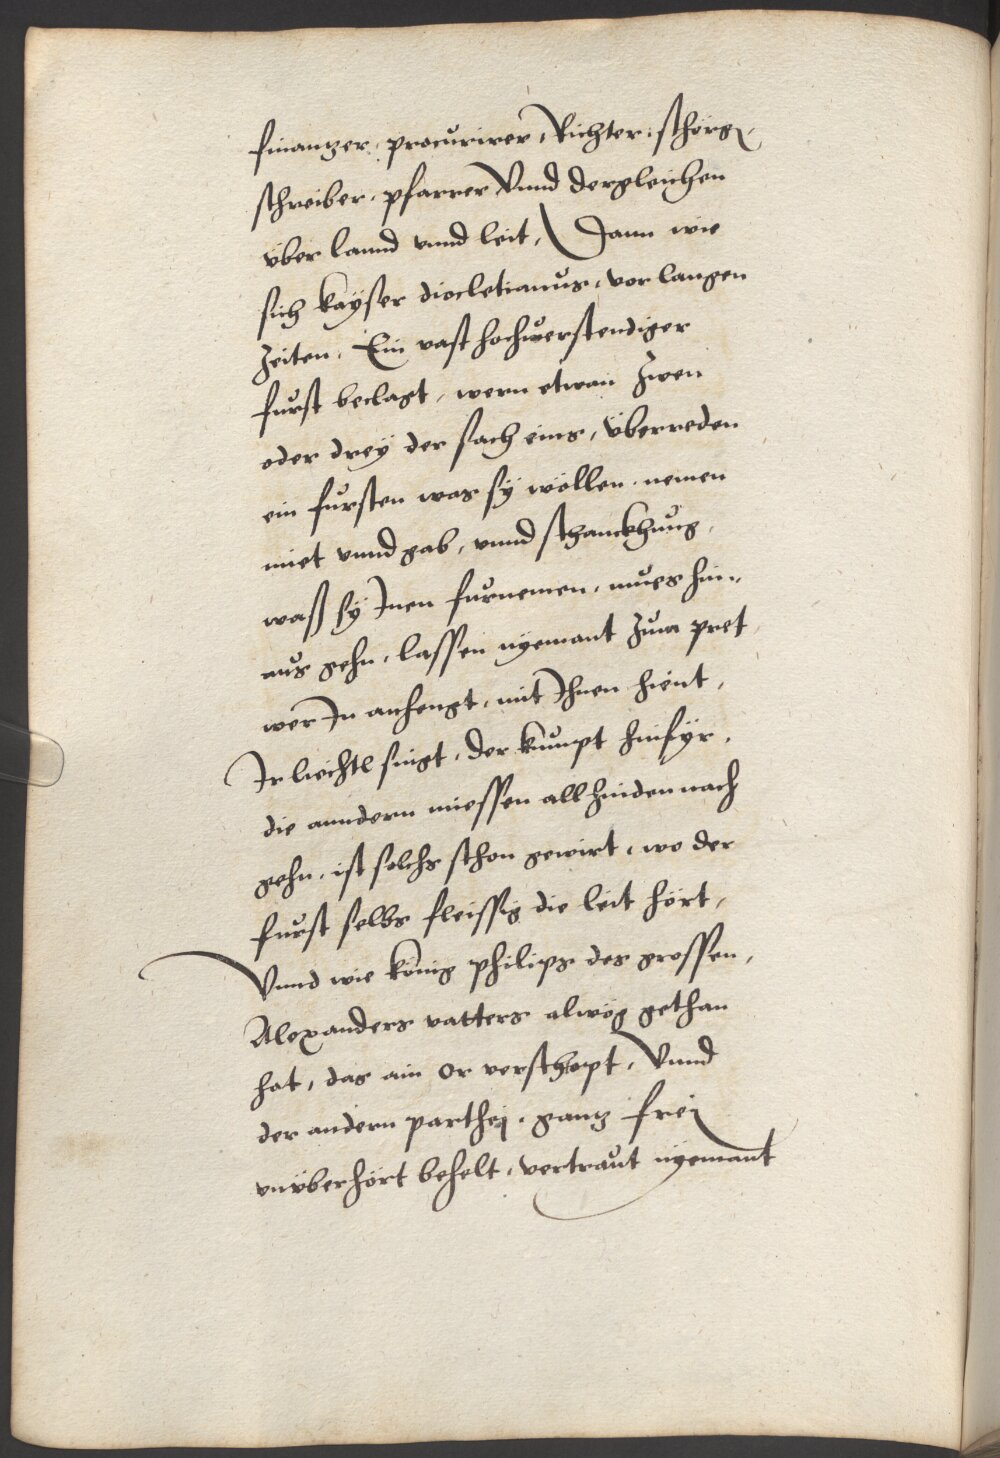 finantzer, procurirer, Richter, schörg,
schreiber, pfarrer Vnnd dergleichen
über lannd vnnd leit, Dann wie
sich kaÿser diocletianus, vor langen
Zeiten, Ein vast hochverstendiger
fürst beclagt, wern etwan Zwen
oder dreÿ der sach eins, überreden
ein fürsten was sÿ wöllen, nemen
miet vnnd gab, vnnd schanckhung,
wasß sÿ Jnen fürnemen, mues hin,,
aus gehn, lassen nÿemant Zum pret
wer Jn anhengt, mit Jhnen hient,
Jr liechtl singt, der kumpt hinfÿr,
die anndern miessen all hinden nach
gehn, ist solchs schon gewirt, wo der
fürst selbs fleissig die leit hört,
Vnnd wie könig philips des grossen,
Alexanders vatters alweg gethan
hat, das ain or verschopt, Vnnd
der andern parthej, gantz frej
vnüberhört behelt, vertraut nÿemant